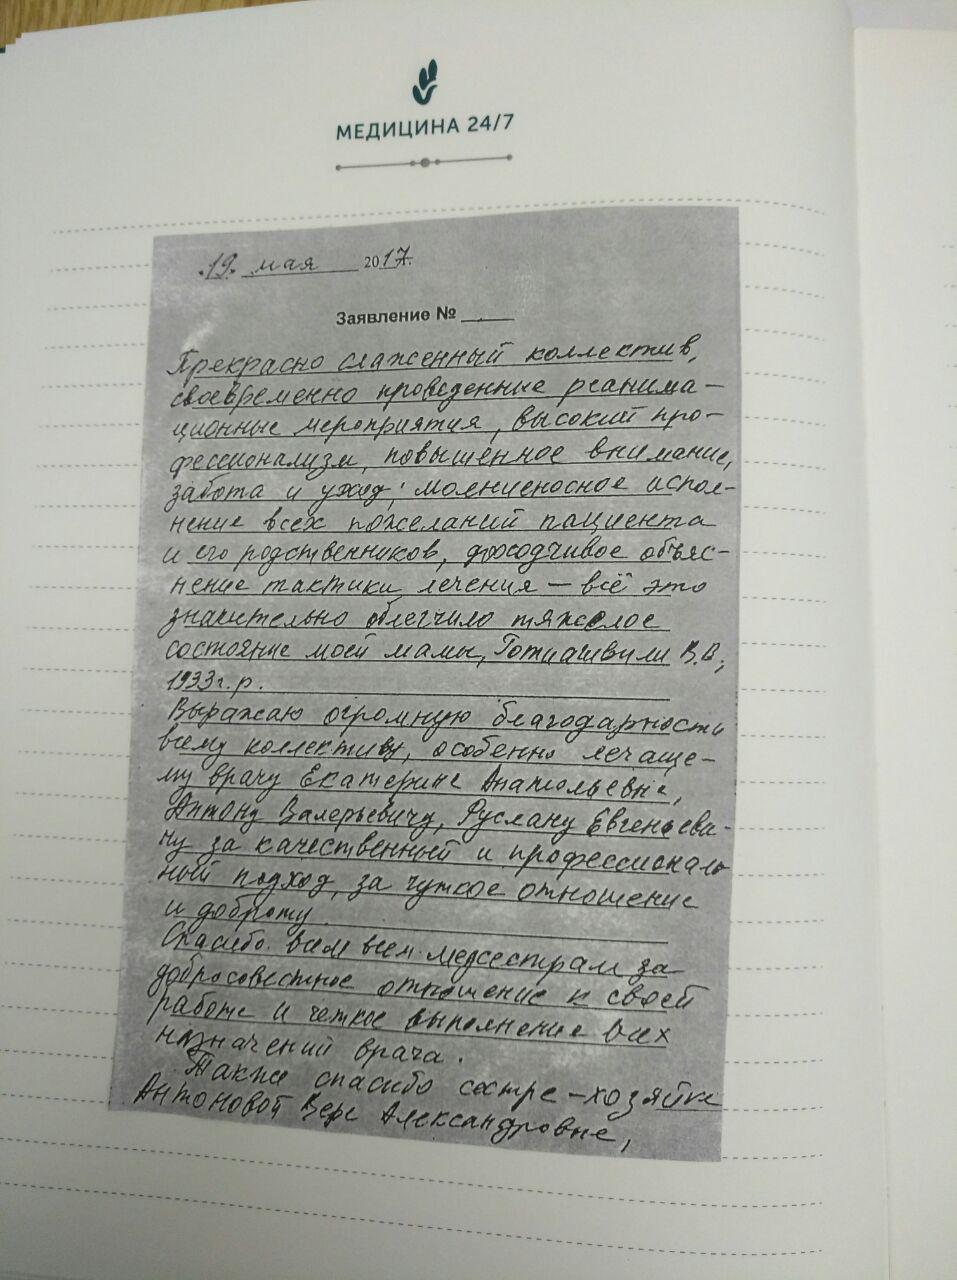 МЕДИЦИНА 24/7
19. мая 2017.
Заявление №
Прекрасно слаженный коллектив,
своевременно проведенные реанима-
ционные мероприятия, высокий про-
фессионализм, повышенное внимание,
забота и уход, молниеносное испол-
нение всех пожеланий пациента
и его родственников, доходчивое объяс-
нение тактики лечения — всё это
значительно облегчило тяжелое
состояние моей мамы, Готиашвили В.В,
1933г.р.
Выражаю огромную благодарность
всему коллективу, особенно лечаще-
му врачу Екатерине Анатольевне,
Антону Валерьевичу, Руслану Евгеньеви-
чу за качественный и профессиональ
ный подход, за чуткое отношение
и доброту.
Спасибо всем всем медсестрам за
добросовестное отношение к своей
работе и четкое выполнение всех
назначений врача.
Также спасибо сестре-хозяйке
Антоновой Вере Александровне,